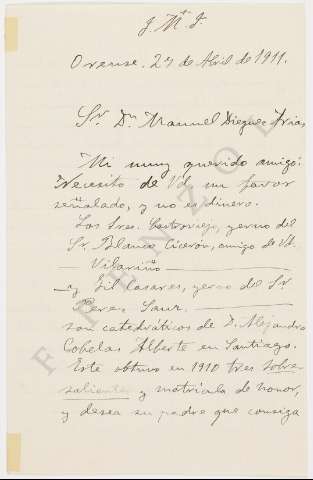 J. M. J.
Orense. 27 de Abril de 1911.
Sr. Dn. Manuel Dieguez Arias
Mi muy querido amigo:
Necesito de Vd un favor
señalado, y no es dinero.
Los Sres. Castroviejo, yerno del
Sr. Blanco Cicerón, amigo de Vd.
Vilariño
y Gil Casares, yerno del Sr.
Perez Saez.
son catedráticos de D. Alejandro
Cobelas Alberte en Santiago.
Este obtuvo en 1910 tres sobre-
salientes y matrícula de honor,
y desea su padre que consiga